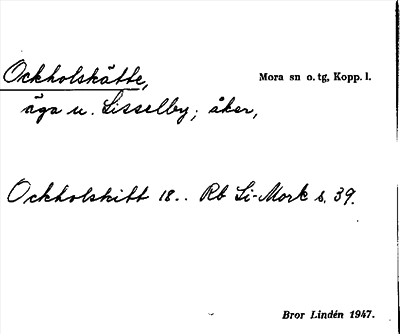 Ockholskätte, Mora sn o. tg, Kopp. l.
äga u. Lisselby; åker,
Ockholskitt 18.. Rb Li-Mork s. 39.
Bror Lindén 1947.